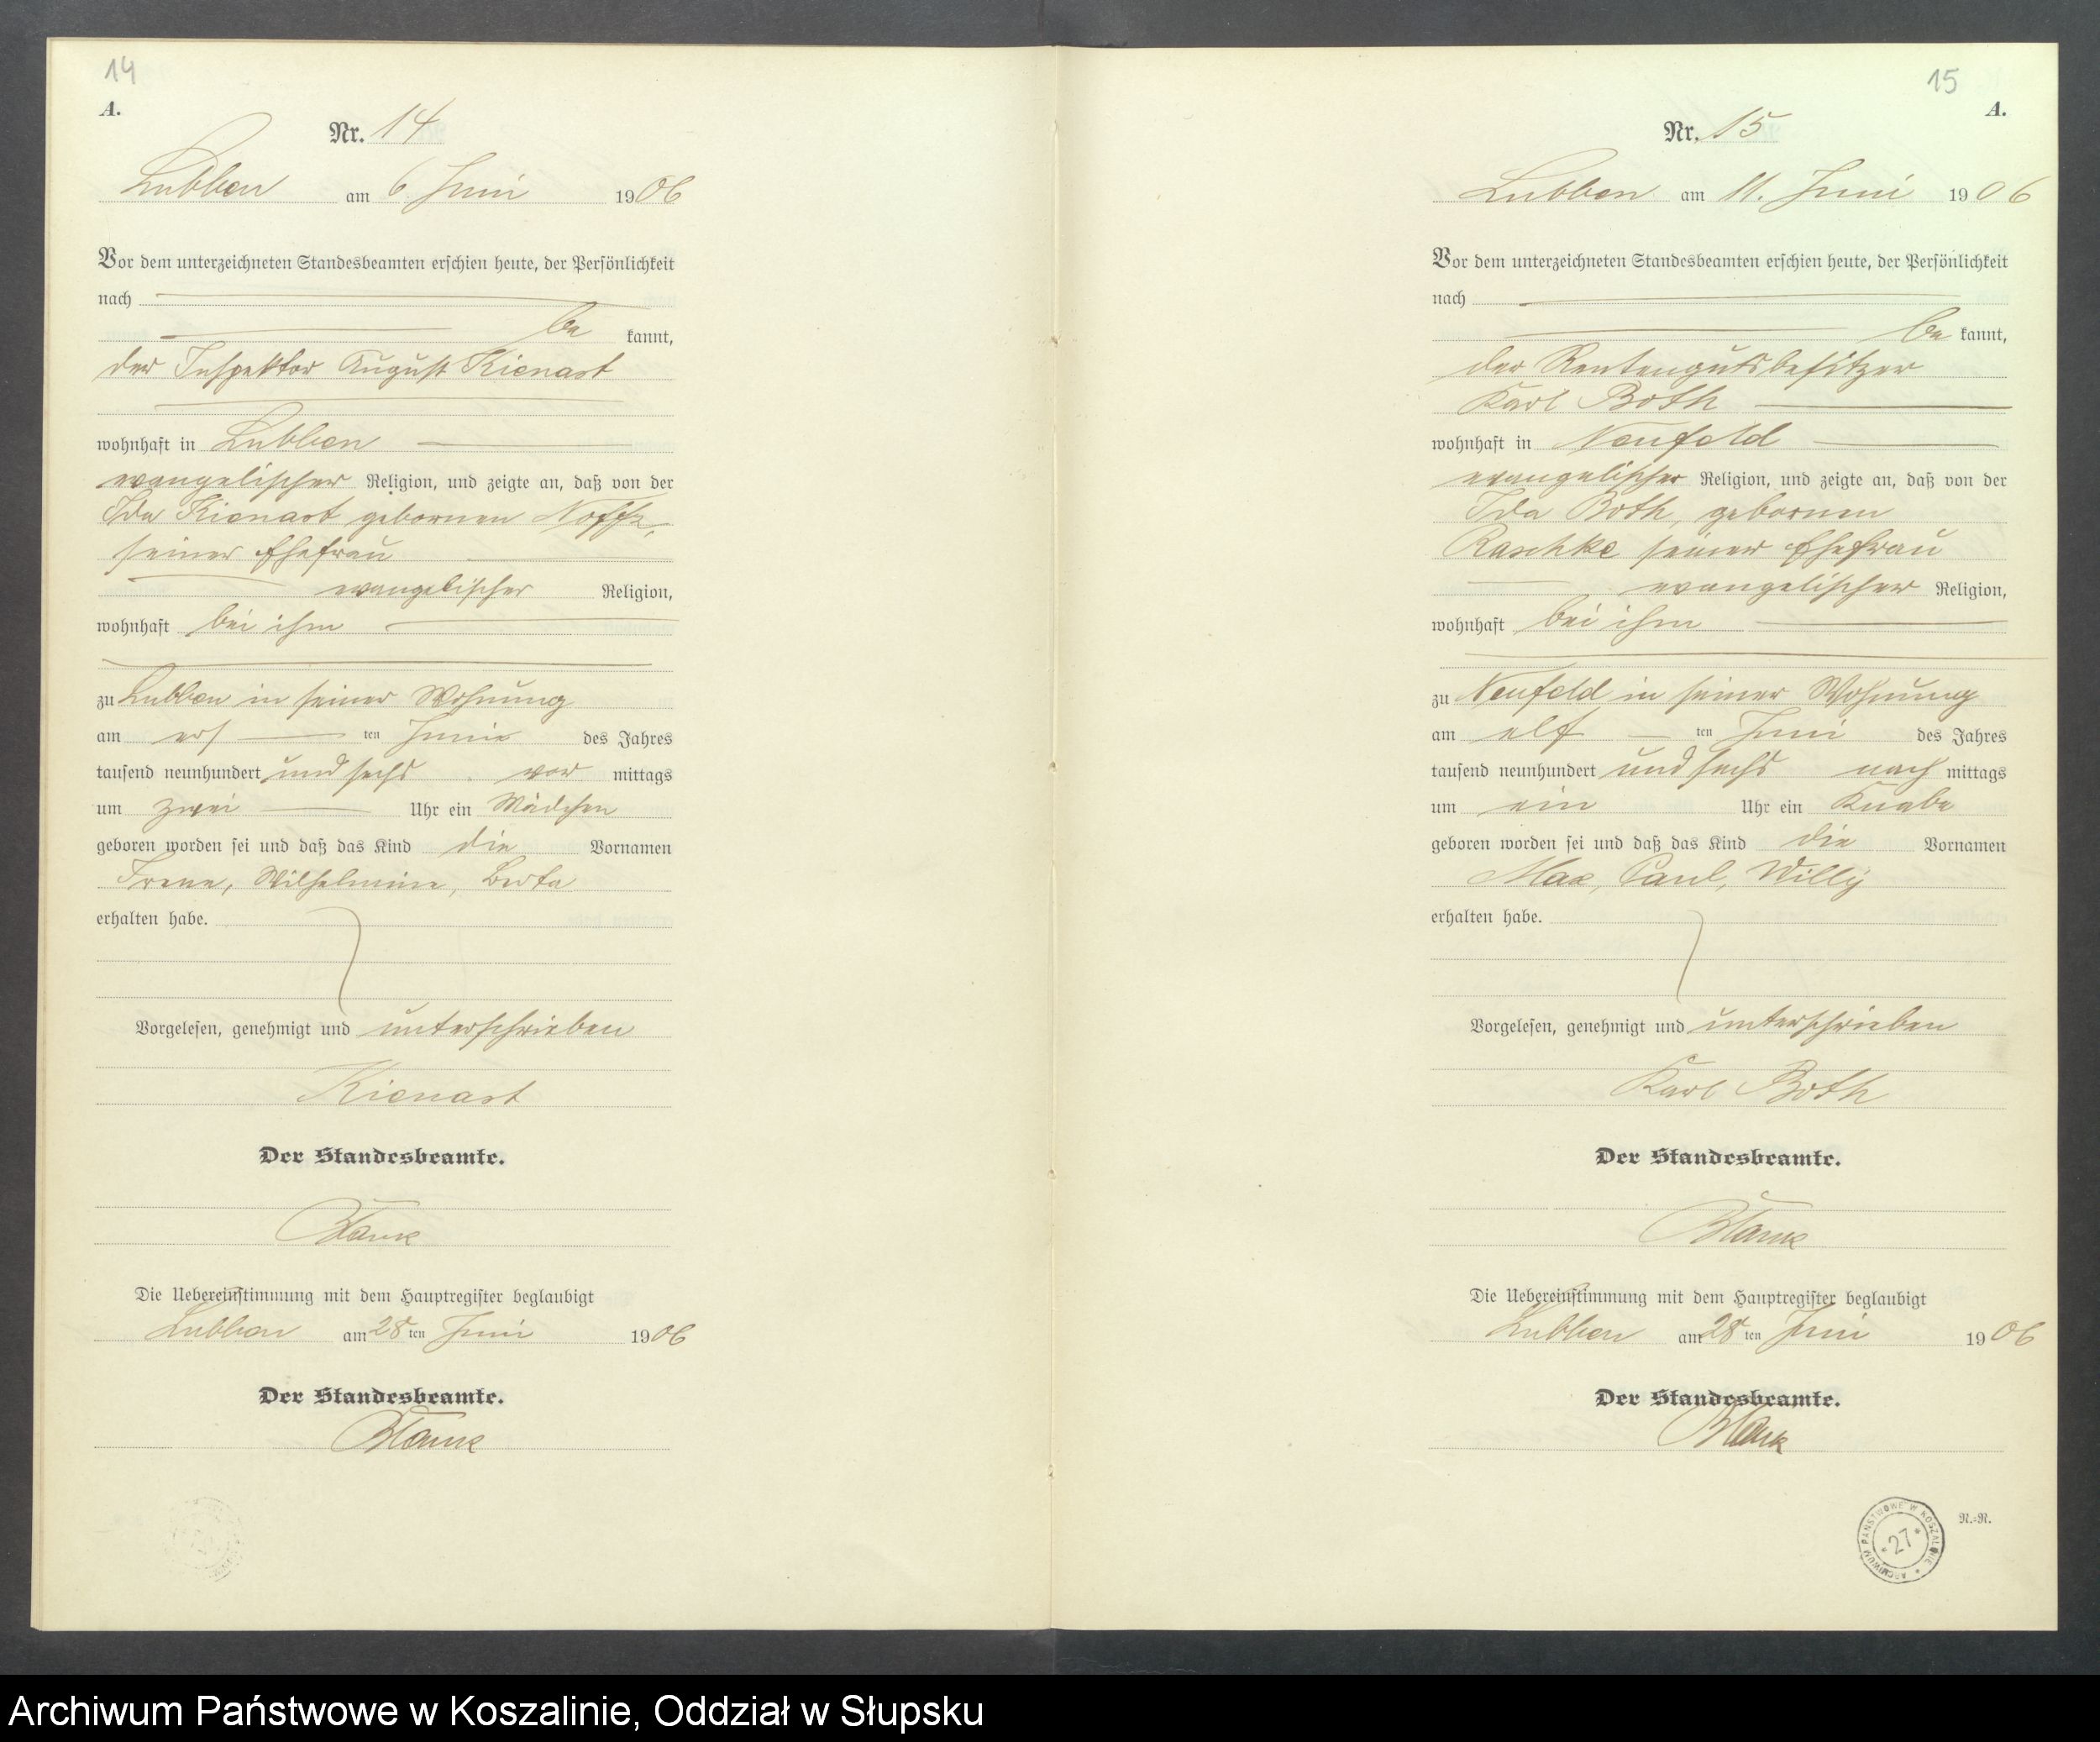 14
A.
Nr. 14
Lubben am 6. Juni 1906
Vor dem unterzeichneten Standesbeamten erschien heute, der Persönlichkeit
nach
be kannt,
der Inspektor August Kienast
wohnhaft in Lubben
evangelischer Religion, und zeigte an, daß von der
Ida Kienast gebornen
seiner Ehefrau
evangelischer Religion,
wohnhaft bei ihm
zu Lubben in seiner Wohnung
am ers ten Juni des Jahres
tausend neunhundert und sechs vor mittags
um zwei Uhr ein Mädchen
geboren worden sei und daß das Kind die Vornamen
Irene, Wilhelmine, Berta
erhalten habe.
Vorgelesen, genehmigt und unterschrieben
Kienast
Der Standesbeamte.
Die Uebereinstimmung mit dem Hauptregister beglaubigt
Lubben am 28 ten Juni 1906
Der Standesbeamte.
15
A.
Nr. 15
Lubben am 11. Juni 1906
Vor dem unterzeichneten Standesbeamten erschien heute, der Persönlichkeit
nach
be kannt,
der Rentengutsbesitzer
Karl Both
wohnhaft in Neufeld
evangelischer Religion, und zeigte an, daß von der
Ida Both, gebornen
Raschke seiner Ehefrau
evangelischer Religion,
wohnhaft bei ihm
zu Neufeld in seiner Wohnung
am elf ten Juni des Jahres
tausend neunhundert und sechs nach mittags
um ein Uhr ein Knabe
geboren worden sei und daß das Kind die Vornamen
Max, Paul, Willy
erhalten habe.
Vorgelesen, genehmigt und unterschrieben
Karl Both
Der Standesbeamte.
Die Uebereinstimmung mit dem Hauptregister beglaubigt
Lubben am 28 ten Juni 1906
Der Standesbeamte.
ARCHIWUM PAŃSTWOWE W KOSZALINIE
* 27 *
N.=N.
Archiwum Państwowe w Koszalinie, Oddział w Słupsku